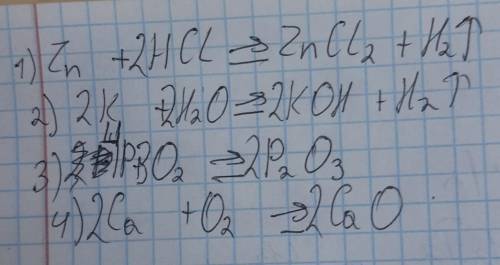 1) Zn +2HCl ⇒ ZnCl2 + H2↑
2) 2K +2H2O ⇒ 2KOH + H2↑
3) 4P3O2 ⇒ 2P2O3
4) 2Ca +O2 ⇒ 2CaO